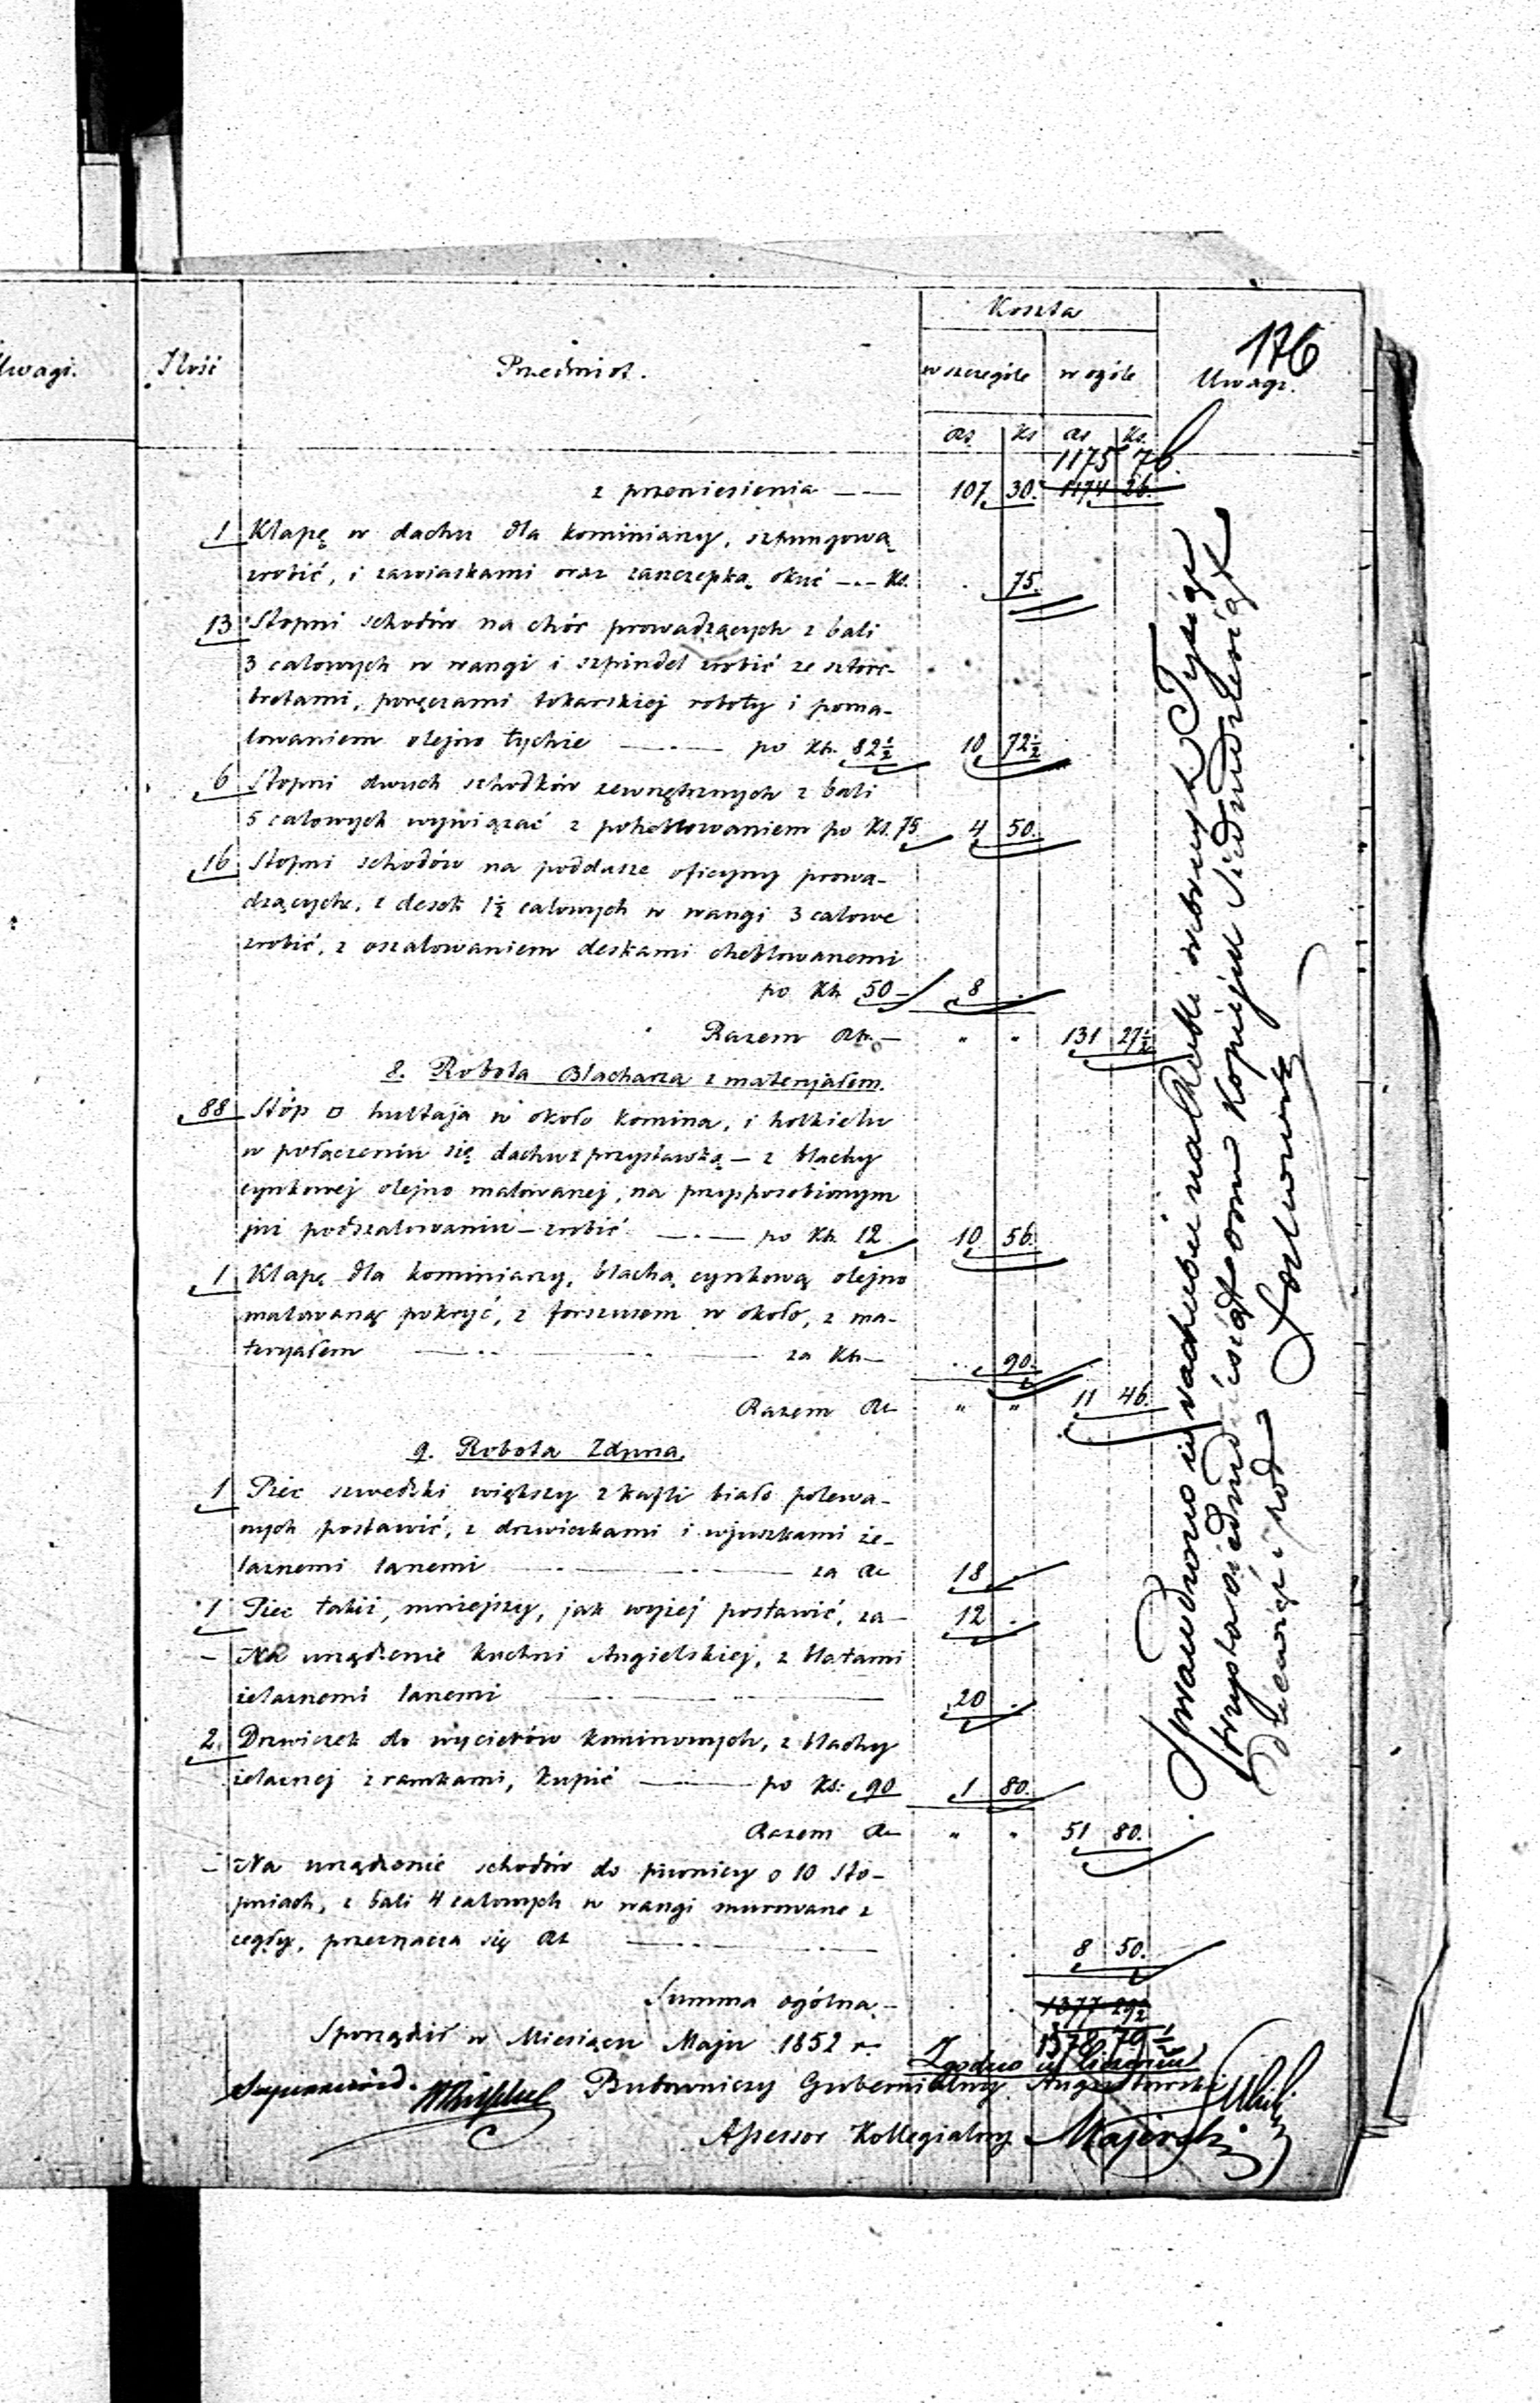 Uwagi.
176
Koszta
Ilość Przedmiot. w szczególe w ogóle Uwagi.
Rs. Ks Rs Ks.
1175 76.
z przeniesienia — 107 30. 1174 26.
1 Klapę w dachu dla kominiarzy, sztungową
zrobić, i zawiaskami oraz zaszczepką okuć —.— Ks. . 75.
13 Stopni schodów na chór prowadzących z bali
3 calowych w wangi i szpindel zrobić ze sztorc-
bretami, poręczami tokarskiej roboty i poma-
lowaniem olejno tychże —.— po Kh. 82½ 10 72½
6 Stopni dwuch schodków zewnętrznych z bali
5 calowych wywiązać z poheblowaniem po Ks. 75 4 50.
16 Stopni schodów na poddasze oficyny prowa-
dzących, z desek 1½ calowych w wangi 3 calowe
zrobić, z oszalowaniem deskami cheblowanemi
po Kh 50 — 8 .
Razem Rh. — " " 131 27½
8. Robota Blacharza z materyałem.
88 Stóp □ hultaja w około komina, i holkielu
w połączeniu się dachu z przystawką — z blachy
cynkowej olejno malowanej, na przysposobionym
już podszalowaniu — zrobić —.— po Kh. 12 10 56.
1 Klapę dla kominiarzy, blachą cynkową olejno
malowaną pokryć, z forszusem w około, z ma-
teryałem —..— za Kh — . 90.
Razem Rs " " 11 46.
9. Robota Zduna.
1 Piec szwedzki większy z kafli biało polewa-
nych postawić, z drzwiczkami i wjuszkami że-
laznemi lanemi —.— za Rs 18 .
1 Piec takiż, mniejszy, jak wyżej postawić, za — 12 .
— Na urządzenie kuchni Angielskiej, z blatami
żelaznemi lanemi —.— 20 .
2. Drzwiczek do wycierów kominowych, z blachy
żelaznej z ramkami, kupić —.— po Ks: 90 1 80.
Razem Rs " " 51 80.
— Na urządzenie schodów do piwnicy o 10 sto-
pniach, z bali 4 calowych w wangi murowane z
cegły, przeznacza się Rs —.— . . 8 50.
Summa ogólna — . . 1377 29½
1378 79½
Sporządził w Miesiącu Maju 1852 r.
Zgodno w liczeniu
Budowniczy Gubernialny Augustowski
Assessor Kollegialny Majerski
Sprawdzono w rachubie na Rubli srebrnych Tysiąc
trzysta siedmdziesiąt ośm Kopiejek siedmdziesiąt
dziewięć i pół